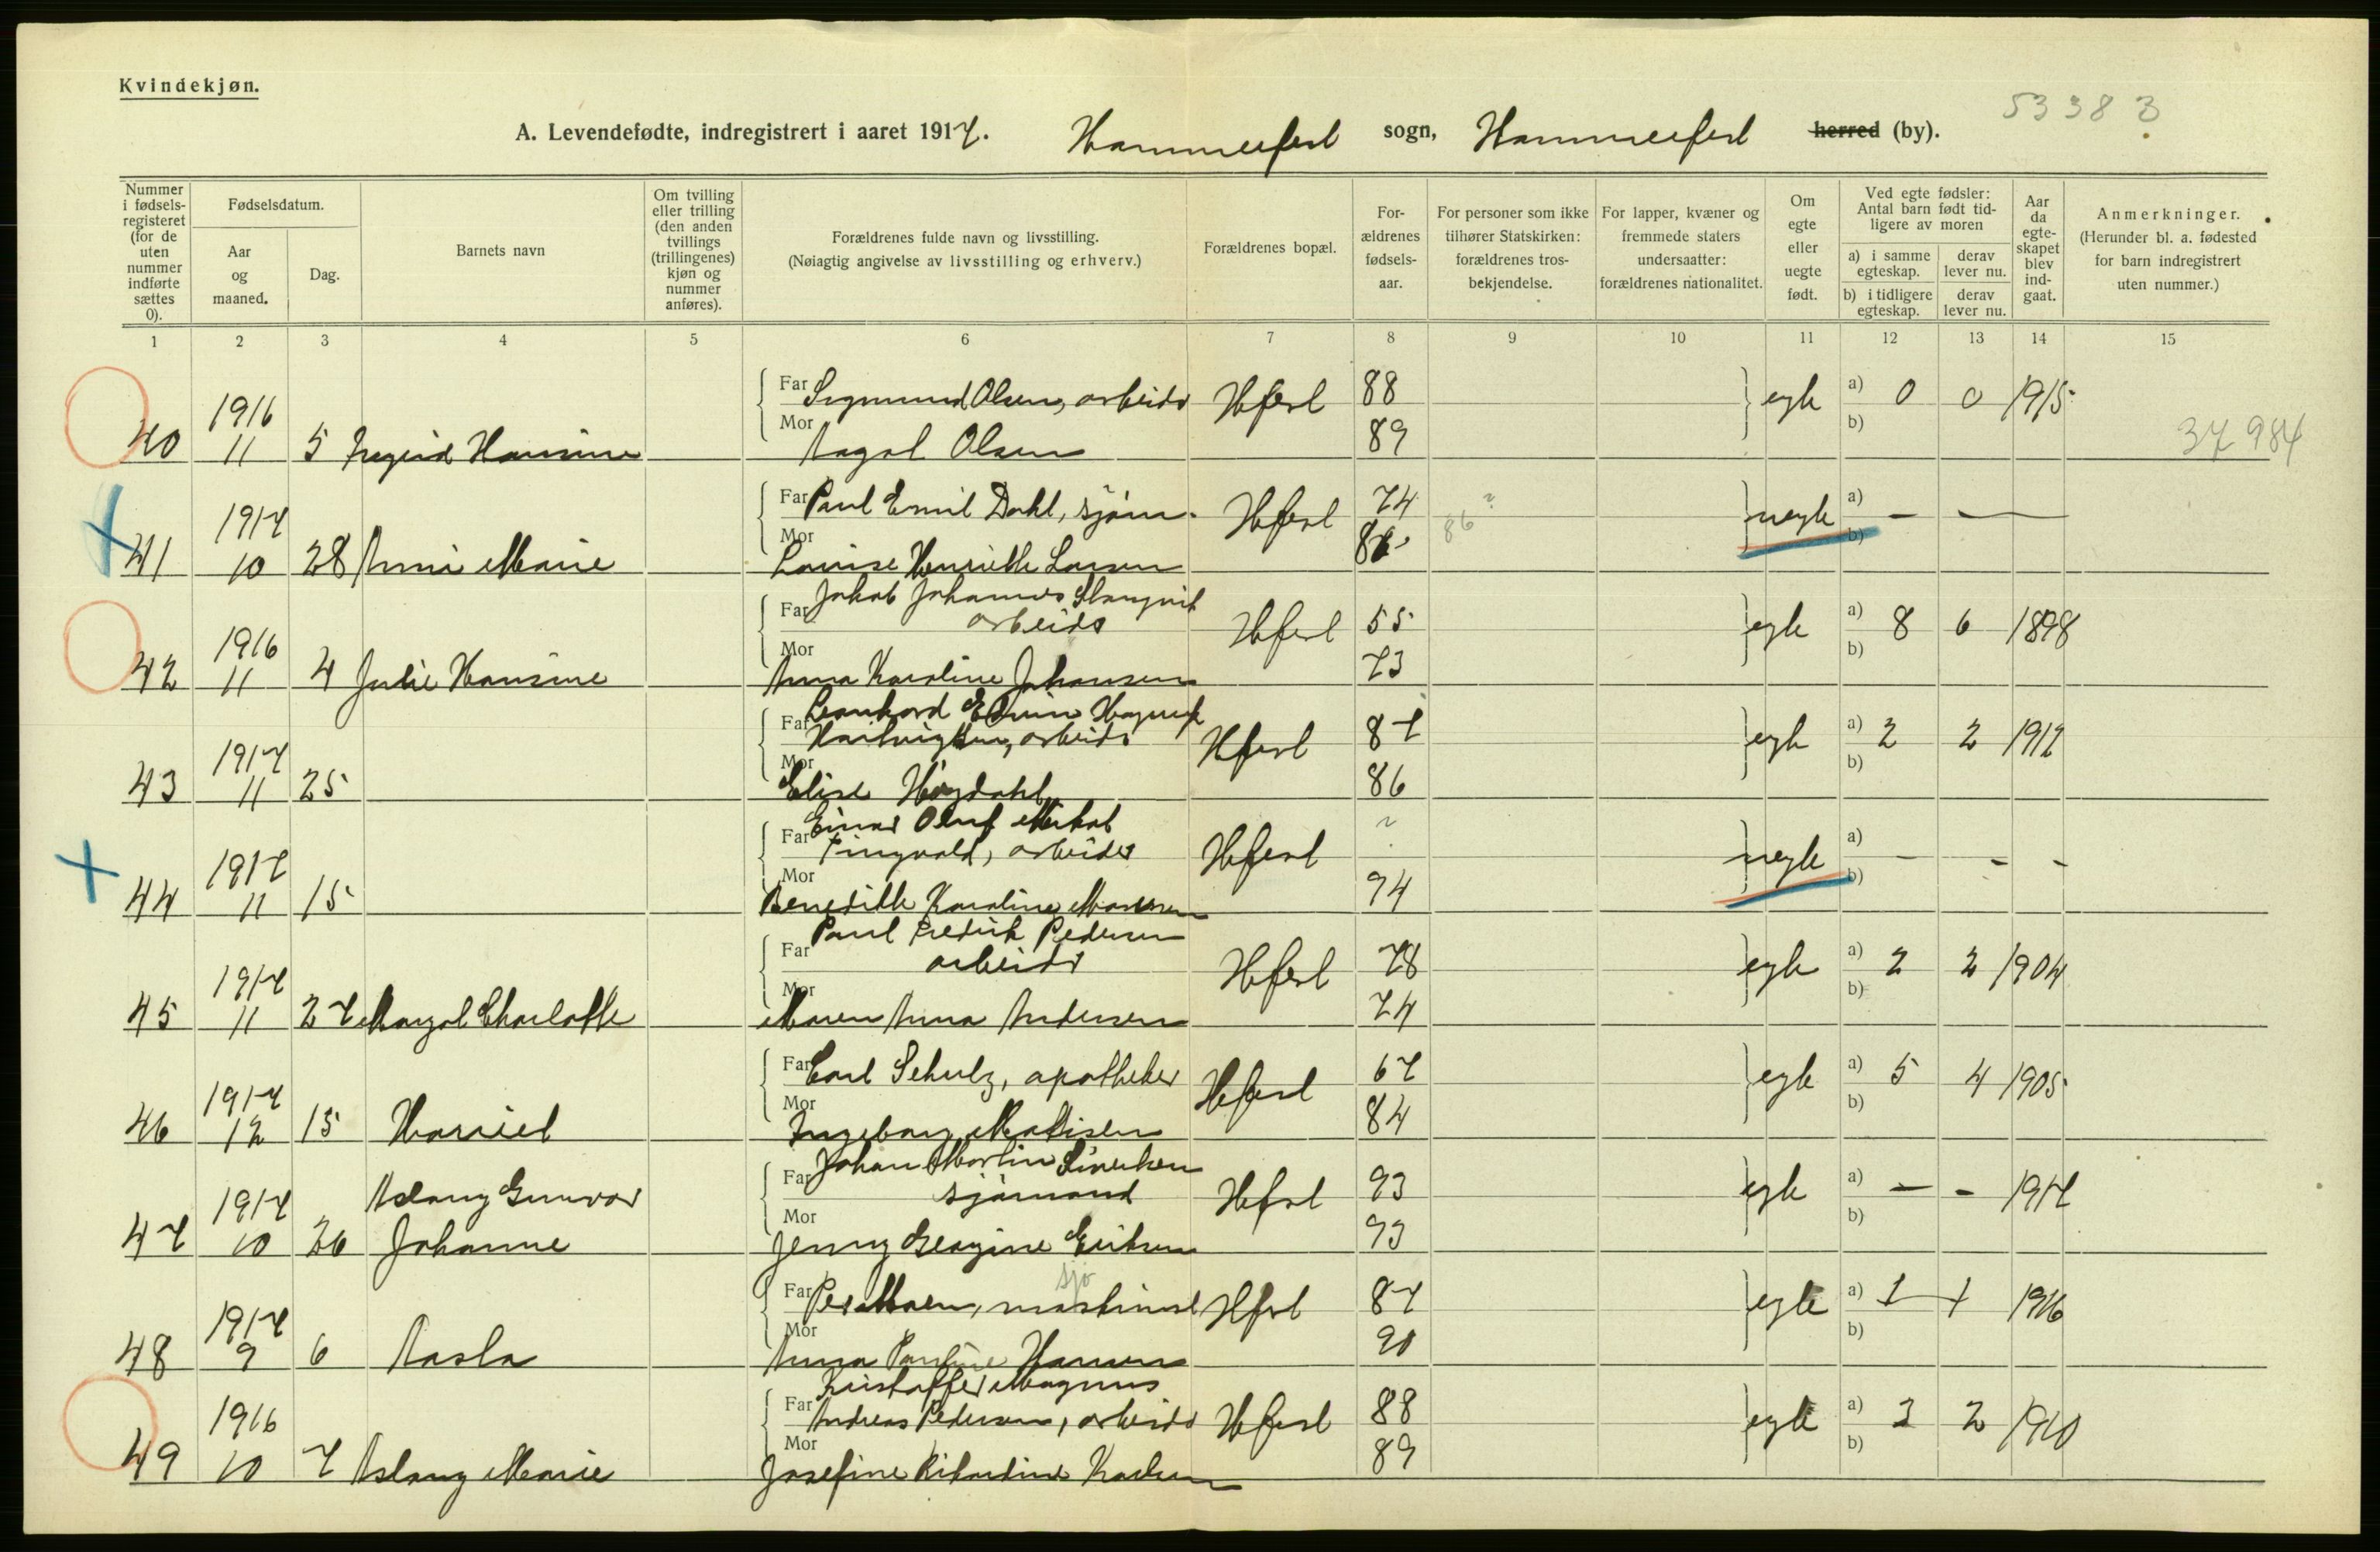 Kvindekjøn.
53383
A. Levendefødte, indregistrert i aaret 1917. Hammerfest sogn, Hammerfest herred (by).
Nummer i fødsels-registeret (for de uten nummer indførte sættes 0).
Fødselsdatum.
Aar og maaned.
Dag.
Barnets navn
Om tvilling eller trilling (den anden tvillings (trillingenes) kjøn og nummer anføres).
Forældrenes fulde navn og livsstilling.
(Nøiagtig angivelse av livsstilling og erhverv.)
Forældrenes bopæl.
For-ældrenes fødsels-aar.
For personer som ikke tilhører Statskirken: forældrenes tros-bekjendelse.
For lapper, kvæner og fremmede staters undersaatter: forældrenes nationalitet.
Om egte eller uegte født.
Ved egte fødsler: Antal barn født tid-ligere av moren
a) i samme egteskap.
derav lever nu.
b) i tidligere egteskap.
derav lever nu.
Aar da egte-skapet blev ind-gaat.
Anmerkninger.
(Herunder bl. a. fødested for barn indregistrert uten nummer.)
1 2 3 4 5 6 7 8 9 10 11 12 13 14 15
Far Sigmund Olsen, arbeider Hfest 88 egte a) 0 0 1915
40 1916 11 5 Ingrid Hansine Mor Aagot Olsen 89 b) 37984
Far Paul Emil Dahl, sjøm. Hfest 74 uegte a) — —
41 1917 10 28 Anni Marie Mor Lovise Henriette Larsen 86 86 ? b)
Far Jakob Johannes
arbeider Hfest 55 egte a) 8 6 1898
42 1916 11 4 Julie Hansine Mor Anna Karoline Johansen 73 b)
Far Leonhard Edvin
Hartvigsen, arbeider Hfest 87 egte a) 2 2 1912
43 1917 11 25 Mor Elise Høgdahl 86 b)
Far Einar Oluf
Tingvold, arbeider Hfest ? uegte a) - - -
44 1917 11 15 Mor Benedikte Karoline 94 b)
Far Paul Fredrik Pedersen
arbeider Hfest 78 egte a) 2 2 1904
45 1917 11 27 Margot Charlotte Mor Maren Anna Andersen 74 b)
Far Carl Schulz, apotheker Hfest 67 egte a) 5 4 1905
46 1917 12 15 Harriet Mor Ingeborg Mathisen 84 b)
Far Johan Martin
sjømand Hfest 93 egte a) — - 1917
47 1917 10 26 Aslaug Gunvor Johanne Mor Jenny Georgine Eriksen 93 b)
sjø
Far Per Moen, maskinist Hfest 87 egte a) 1 1 1916
48 1917 9 6 Aasta Mor Anna Pauline Hansen 90 b)
Kristoffer Magnus
Far Andreas Pedersen, arbeider Hfest 88 egte a) 2 2 1910
49 1916 10 7 Aslaug Marie Mor Josefine Rikardine Karlsen 89 b)